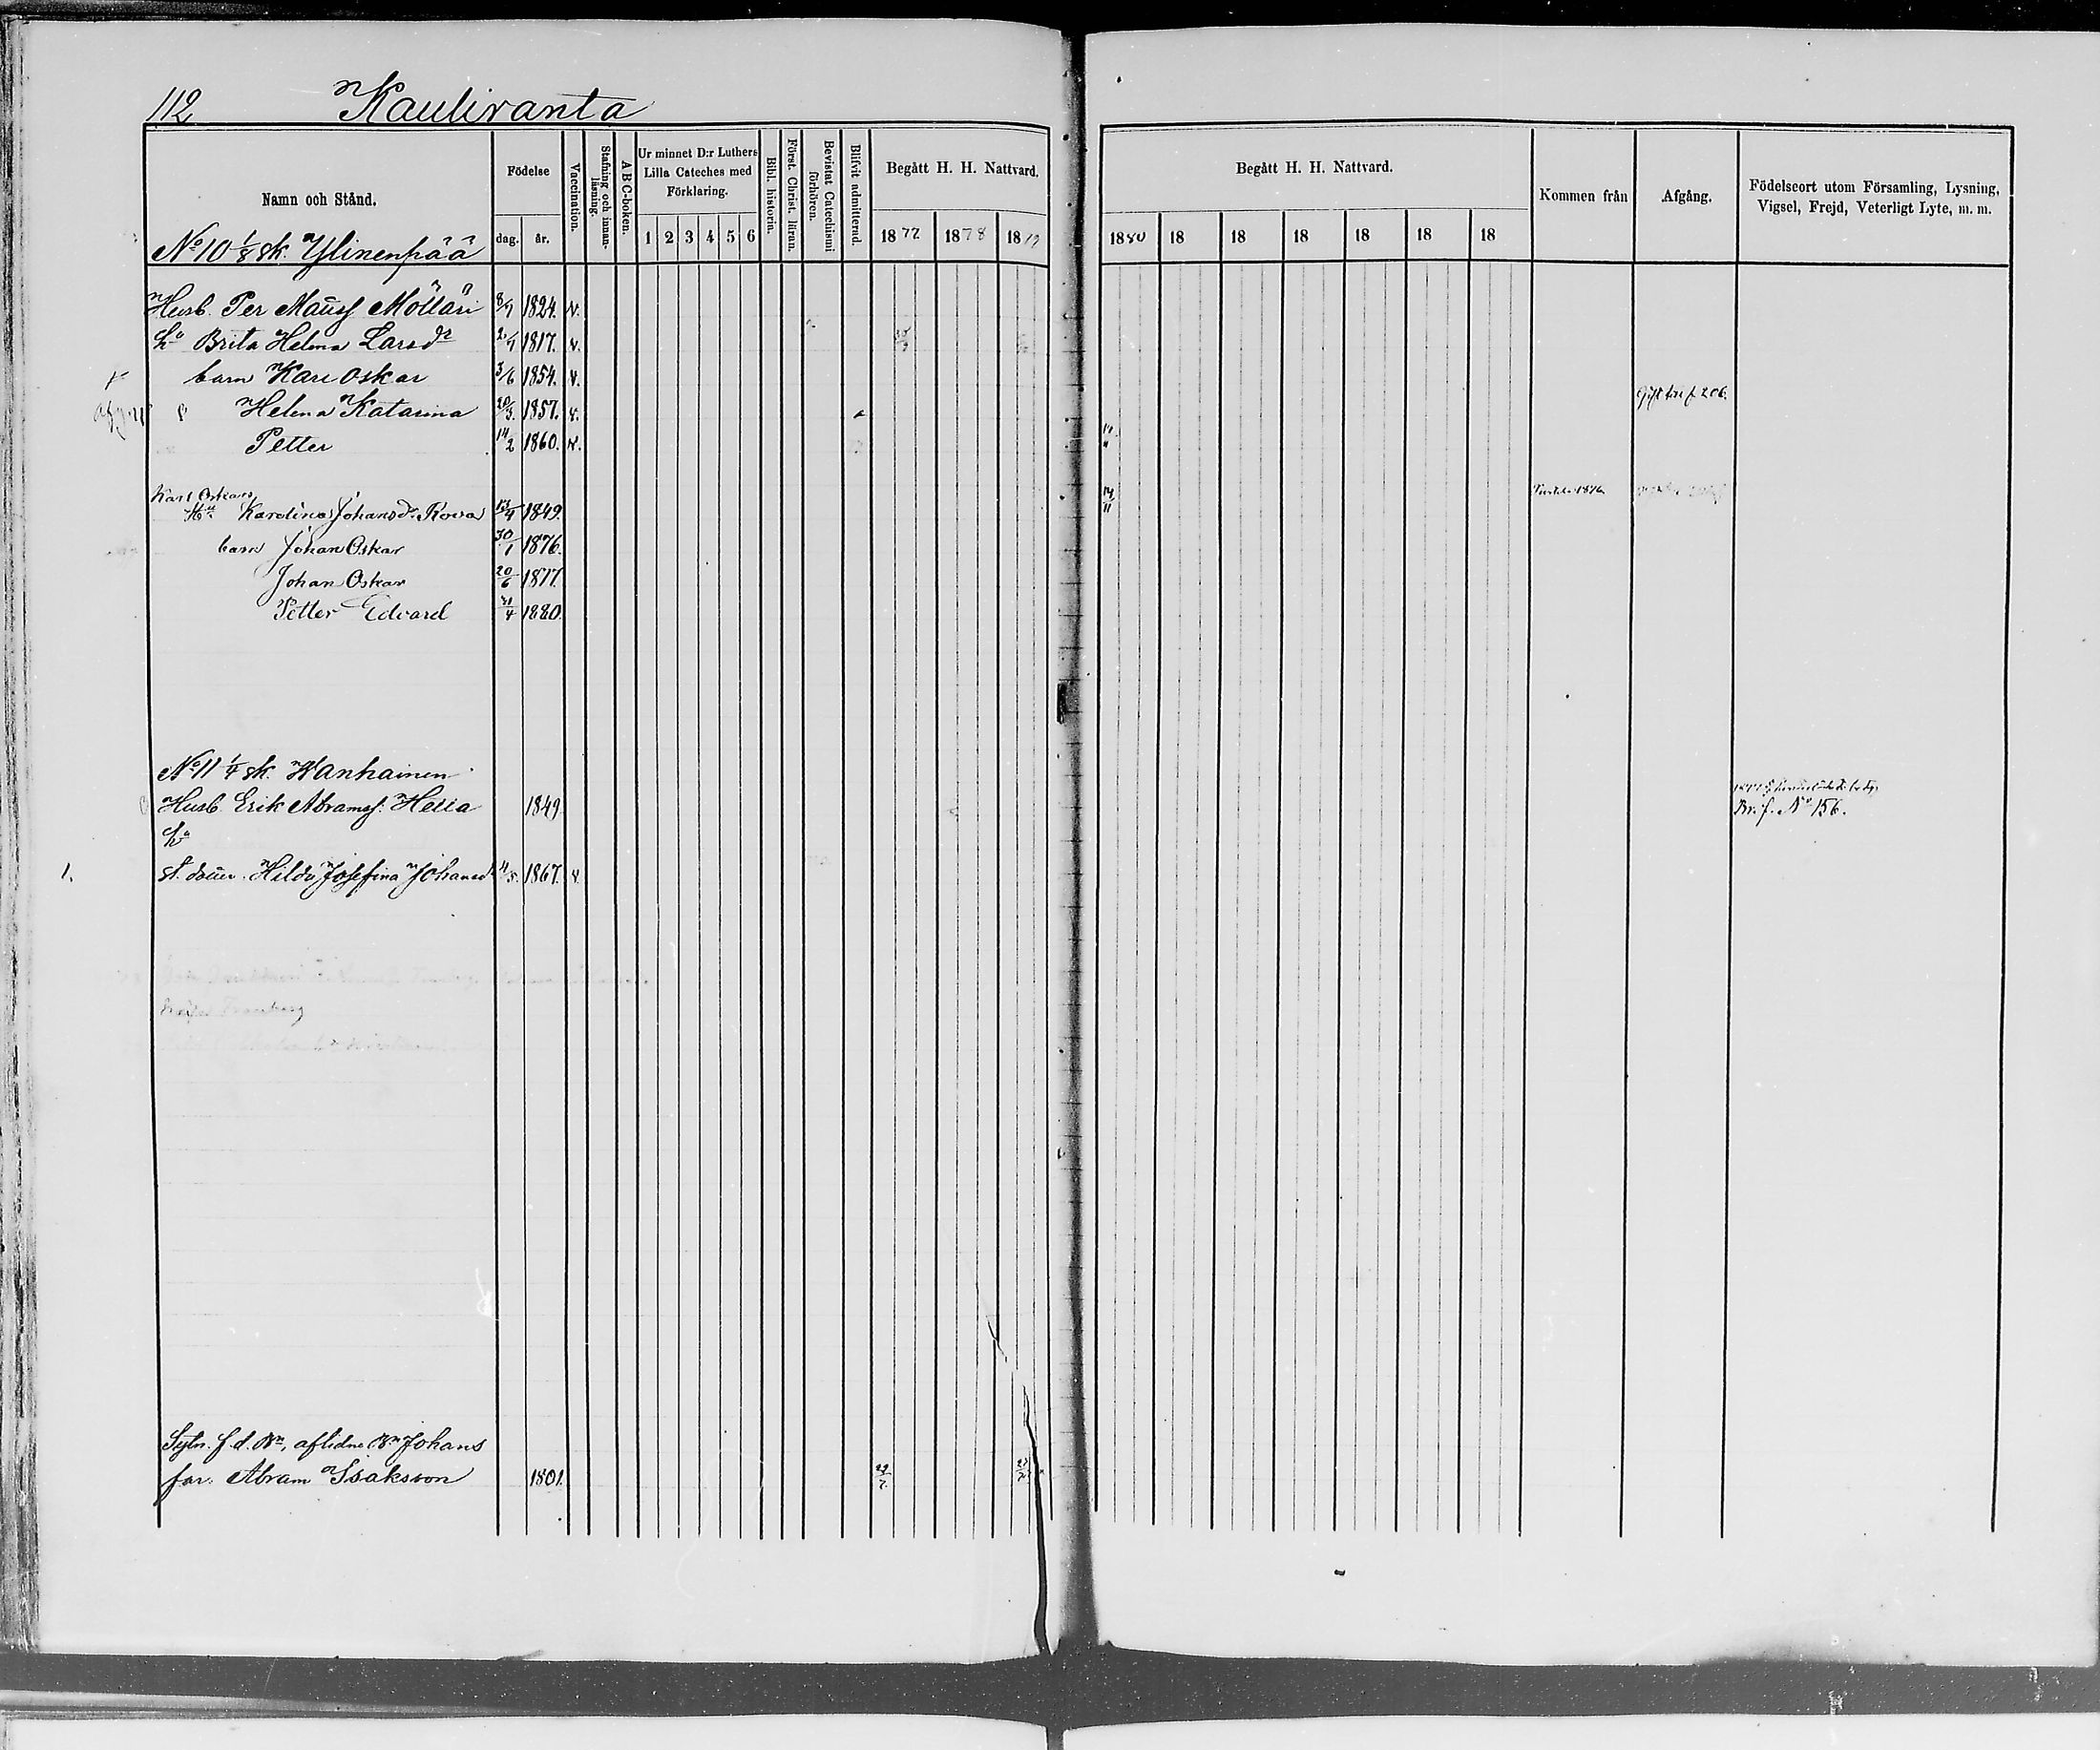 112 Kauliranta
Namn och Stånd.
Födelse
dag. år.
Vaccination.
Stafning och innan-
läsning.
A B C-boken.
Ur minnet D:r Luthers
Lilla Cateches med
Förklaring.
1 2 3 4 5 6
Bibl. historin.
Först. Christ. läran.
Bevistat Catechismi
förhören.
Blifvit admitterad.
Begått H. H. Nattvard.
1877 1878 1879
Begått H. H. Nattvard.
1880 18 18 18 18 18 18
Kommen från
Afgång.
Födelseort utom Församling, Lysning,
Vigsel, Frejd, Veterligt Lyte, m. m.
No 10 1/8 sk. Ylinenpää
Husb. Per Mauss Möllari 8/9 1824. v.
Hu Brita Helena Larsdr 1817. v.
barn Karl Oskar 3/6 1854. v.
Helena Katarina 20/3. 1857. v.
Petter 14/2 1860. v.
Karl Oskars
Hu Karolina Johansdr Rova 13/4 1849. 14/11 1876
barn Johan Oskar 30/1 1876.
Johan Oskar 20/6 1877.
Petter Edvard 1880.
No 11 1/4 sk. Wanhainen
Husb. Erik Abramss. Heita 1849. Br. f. No 156.
Hu
1. Hilda Josefina Johansdr 1867. v.
Sytn. f. d. Bn, aflidne Bn Johans
far: Abram Isaksson 1801.